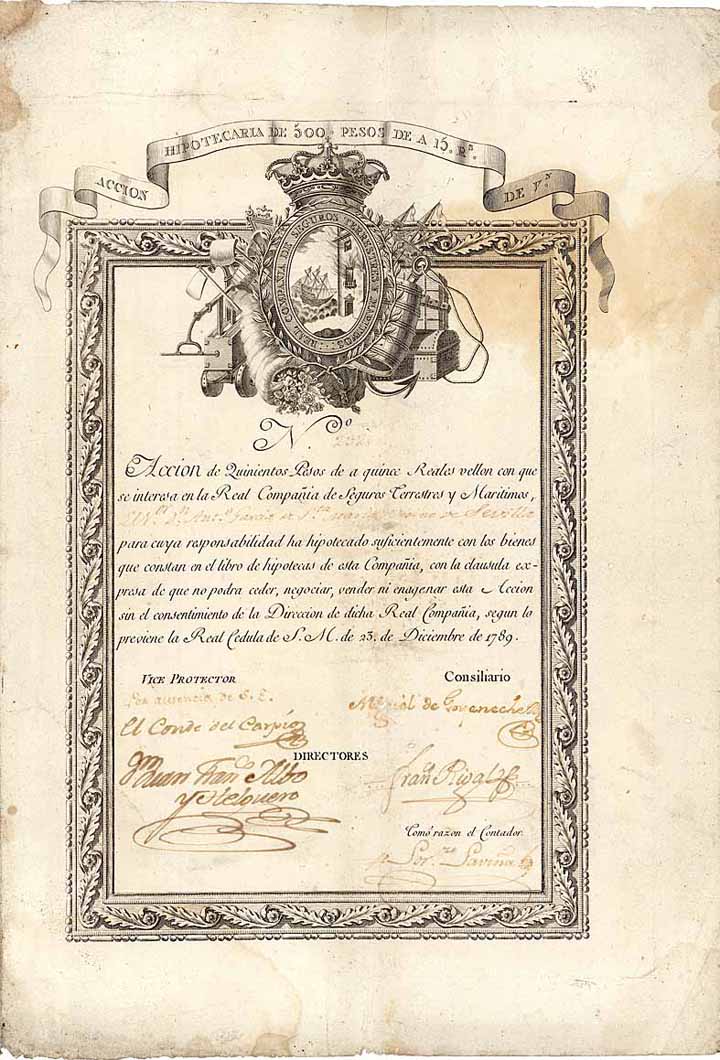 ACCION HIPOTECARIA DE 500. PESOS DE A 15. Rs. DE Vn.
REAL COMPAÑIA DE SEGUROS TERRESTRES Y MARITIMOS
N.o
Accion de Quinientos Pesos de a quince Reales vellon con que
se interesa en la Real Compañia de Seguros Terrestres y Maritimos,
El Sr. Dn. Anto. Garcia de vecino de Sevilla
para cuya responsabilidad ha hipotecado suficientemente con los bienes
que constan en el libro de hipotecas de esta Compañia, con la clausula ex-
presa de que no podra ceder, negociar, vender ni enagenar esta Accion
sin el consentimiento de la Direccion de dicha Real Compañia, segun lo
previene la Real Cedula de S. M. de 23. de Diciembre de 1789.
VICE PROTECTOR
Consiliario
Por ausencia de S. E.
El Conde del Carpio
de Goyeneche
DIRECTORES
Juan Franco. Albo
y Helguero
Tomó razon el Contador.